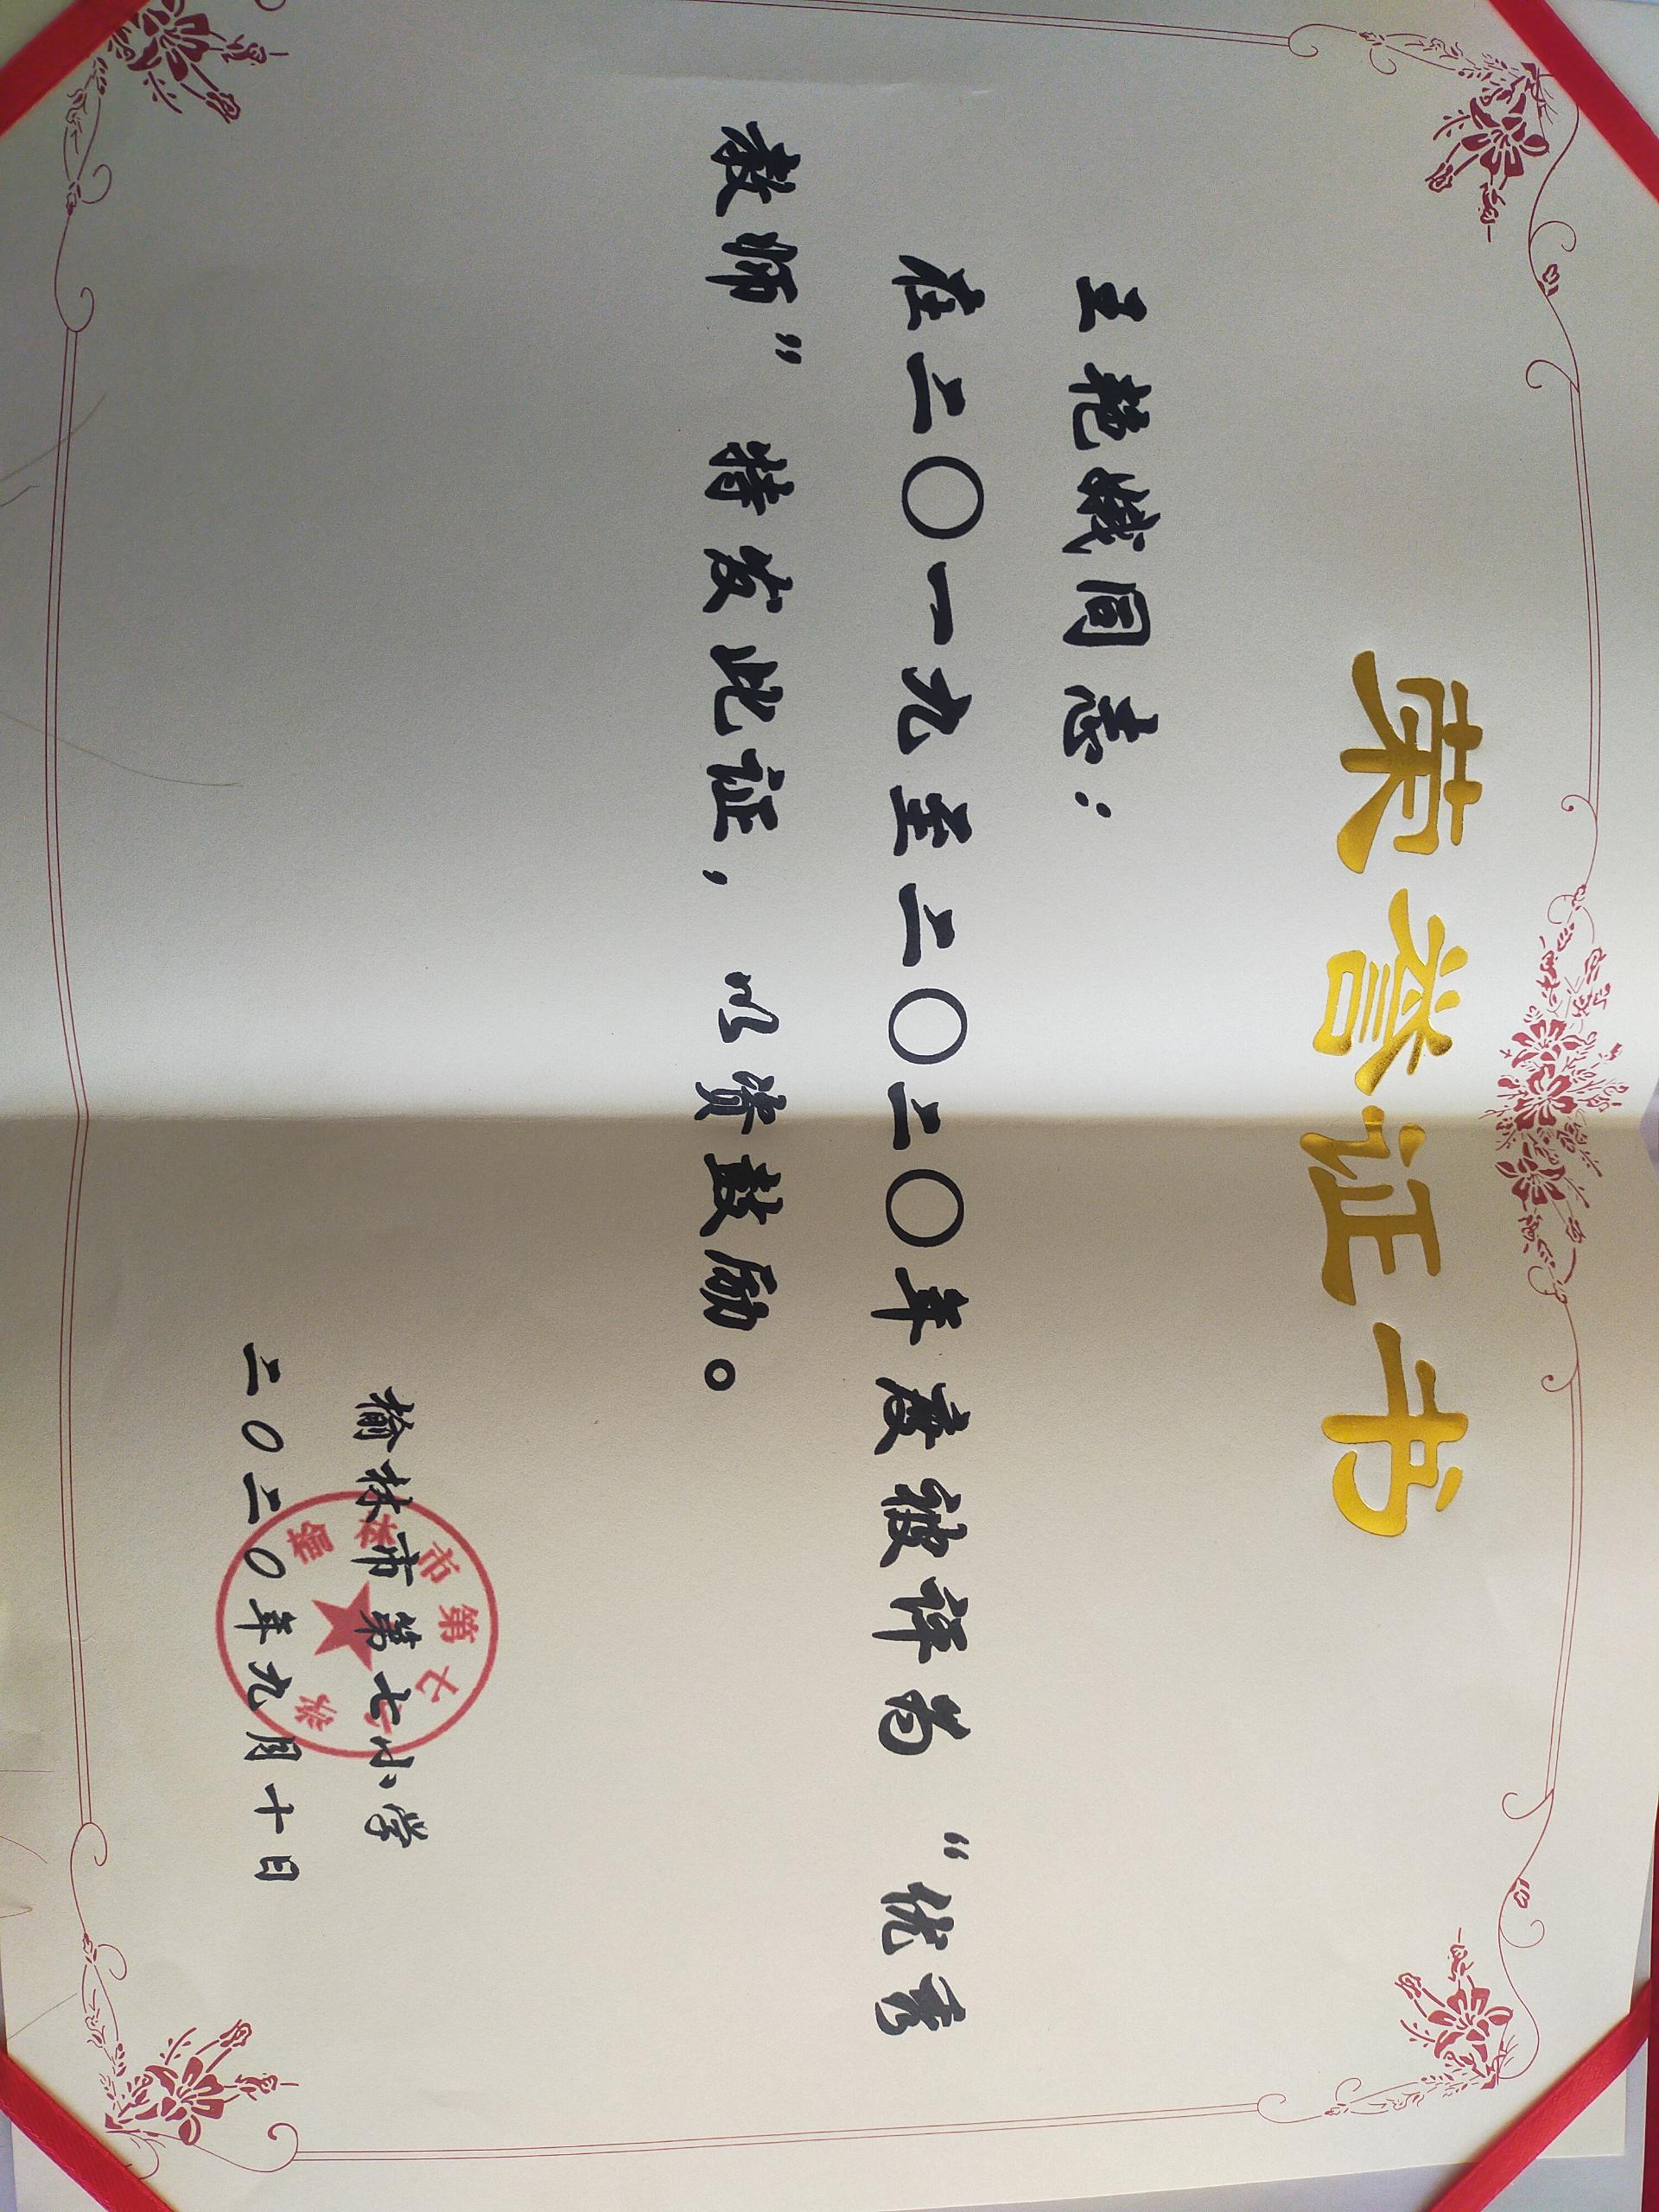 荣誉证书
王艳娥同志：
在二〇一九至二〇二〇年度被评为 “优秀
教师” 特发此证，以资鼓励。
榆林市第七小学
二〇二〇年九月十日
榆林市第七小学